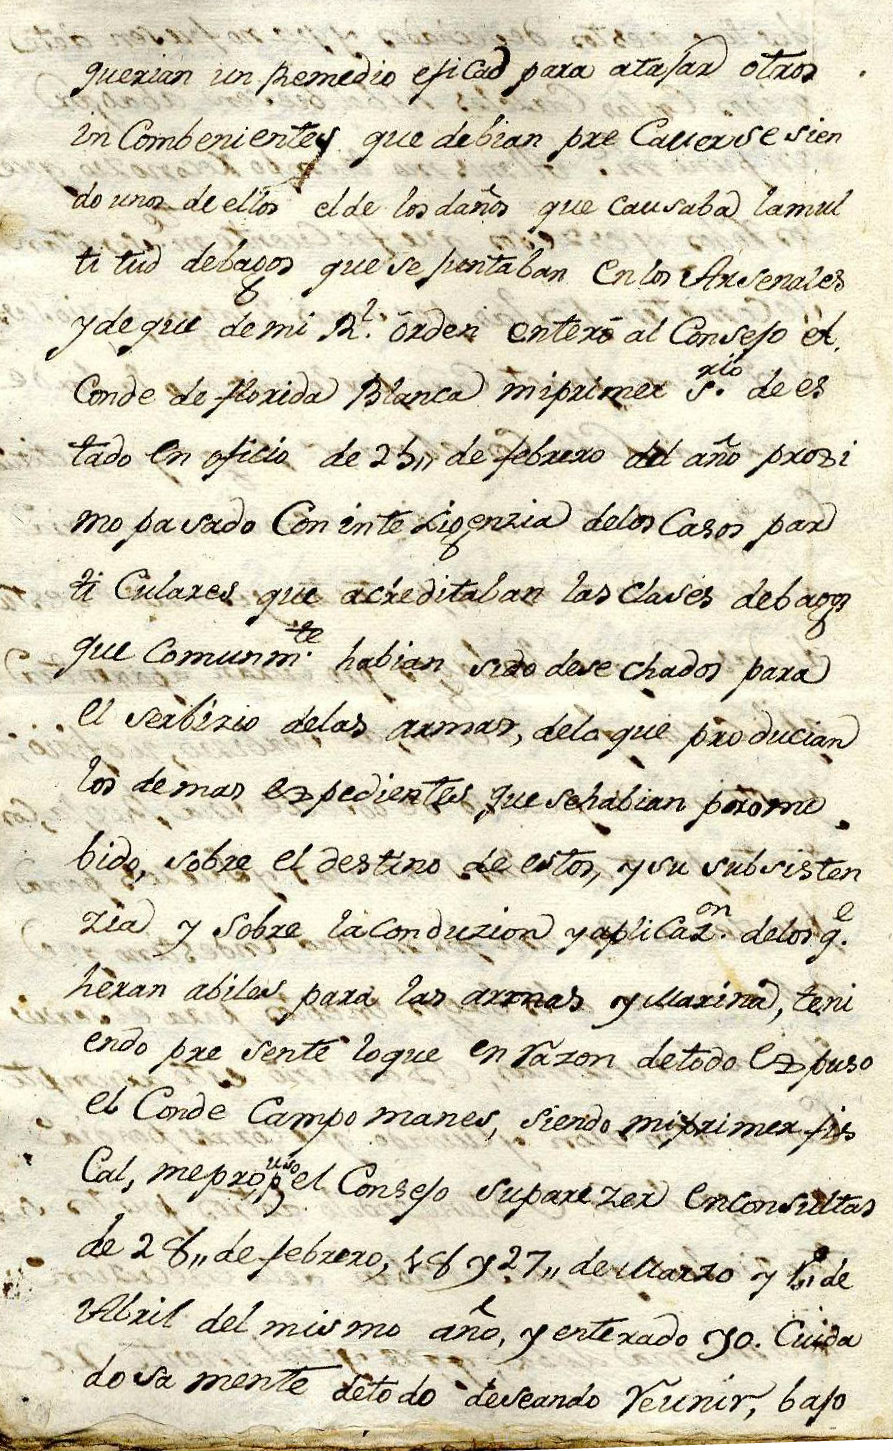 querian un Remedio eficad para atajar otros
in Combenientes que debian pre Cauerse sien
do unos de ellos el de los daños que causaba la mul
ti tud de bagos que se juntaban en los Arsenales
y de que de mi Rl. órden enteró al Consejo el
Conde de florida Blanca mi primer Srio. de es
tado en oficio de 25,, de febrero del año proxi
mo pasado Con inte Ligenzia de los Casos par
ti Culares que acreditaban las clases de bagos
que Comunmte. habian sido dese chados para
el serbizio de las armas, de lo que producian
los demas expedientes que se habian promo
bido, sobre el destino de estos, y su subsisten
zia y sobre la conduzion y aplicazon. de los qe.
heran abiles para las armas y Marina, teni
endo pre sente lo que en razon de todo expuso
el Conde Campo manes, siendo mi primer fis
Cal, me propuso el Consejo su parezer en consultas
de 28,, de febrero, 18 y 27,, de Marzo y de
Abril del mismo año, y enterado yo. Cuida
do sa mente de todo deseando reunir, bajo